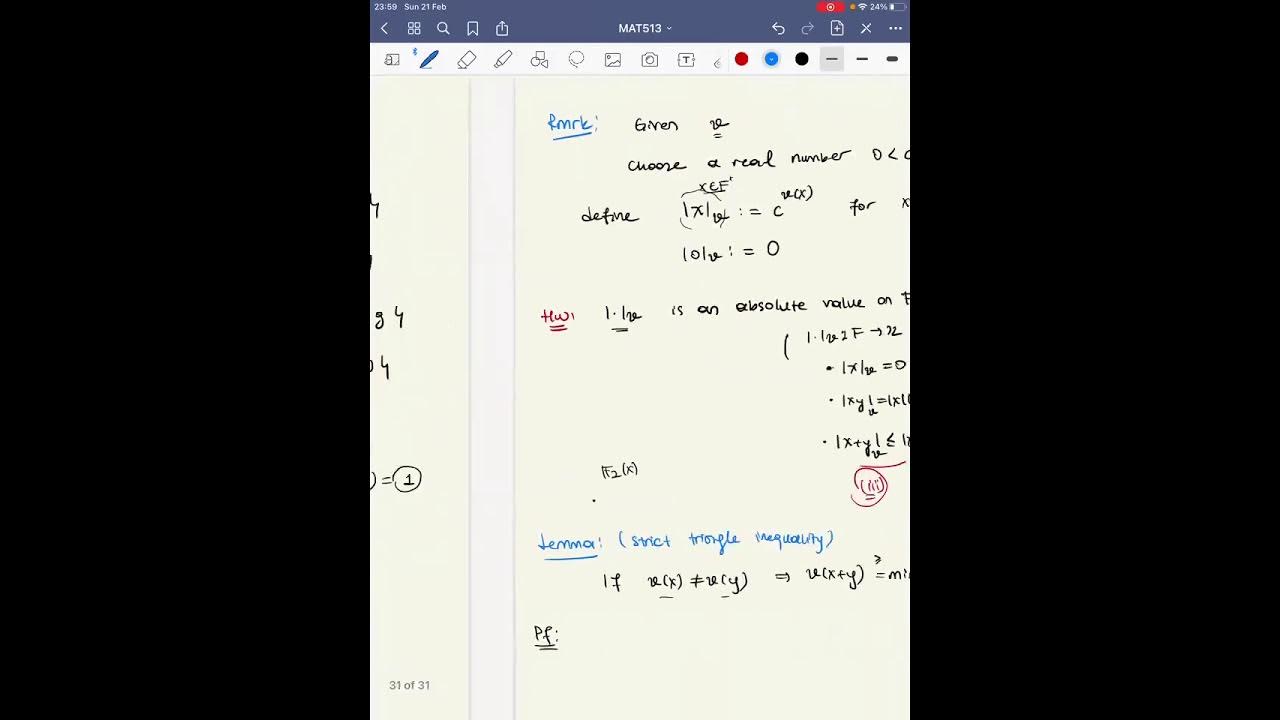 23:59 Sun 21 Feb
24%
MAT513
Rmrk: Given v
choose a real number 0 <
x∈F*
define |x|v := c^v(x) for x
|0|v := 0
g 4
4
HW: |·|v is an absolute value on F
( |·|v : F → ℝ
• |x|v = 0
• |xy|v = |x|
• |x+y|v ≤ |x
(iii)
F2(x)
) = 1
Lemma: (strict triangle inequality)
If v(x) ≠ v(y) ⇒ v(x+y) ≥ = mi
Pf:
31 of 31